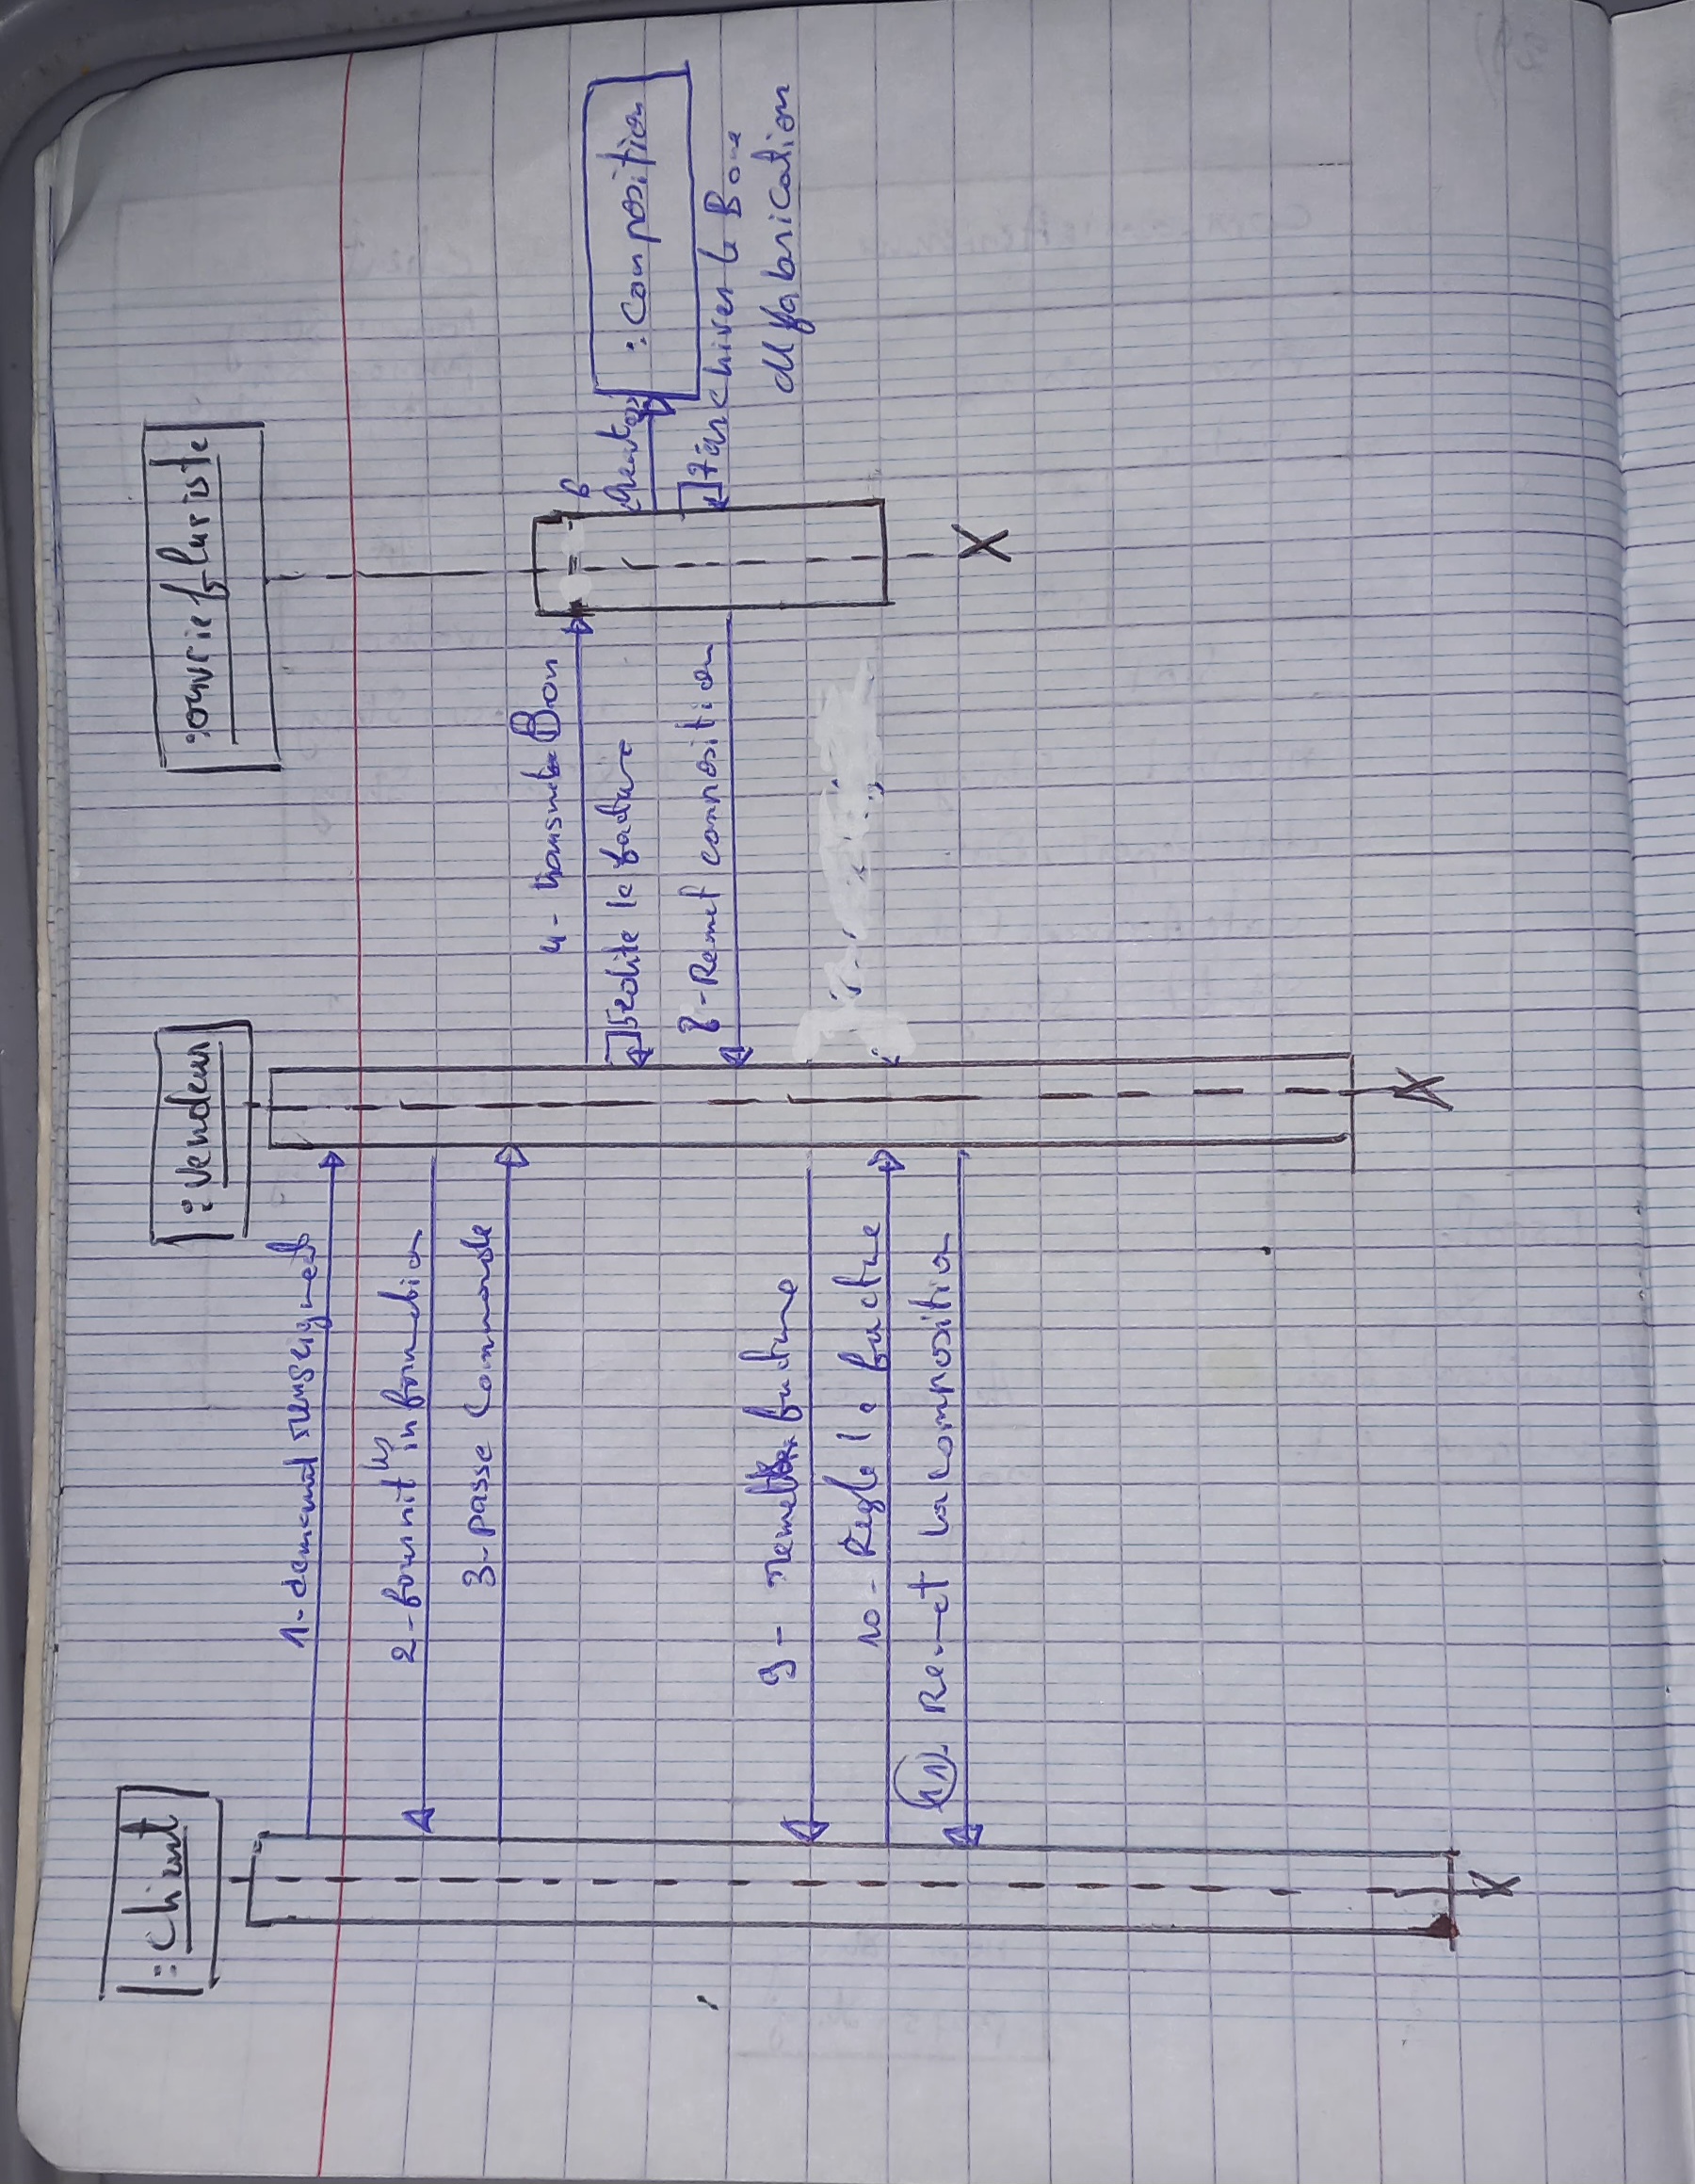 :Client
:Vendeur
:ouvrie fluriste
1-demand renseignement
2-fournit les information
3-passe Commande
4- transmet Bon
:Composition
5 edite le facture
7 archiver le Bone
d fabrication
8-Remet composition
9- remettre facture
10- Regle le facture
11). Remet la composition